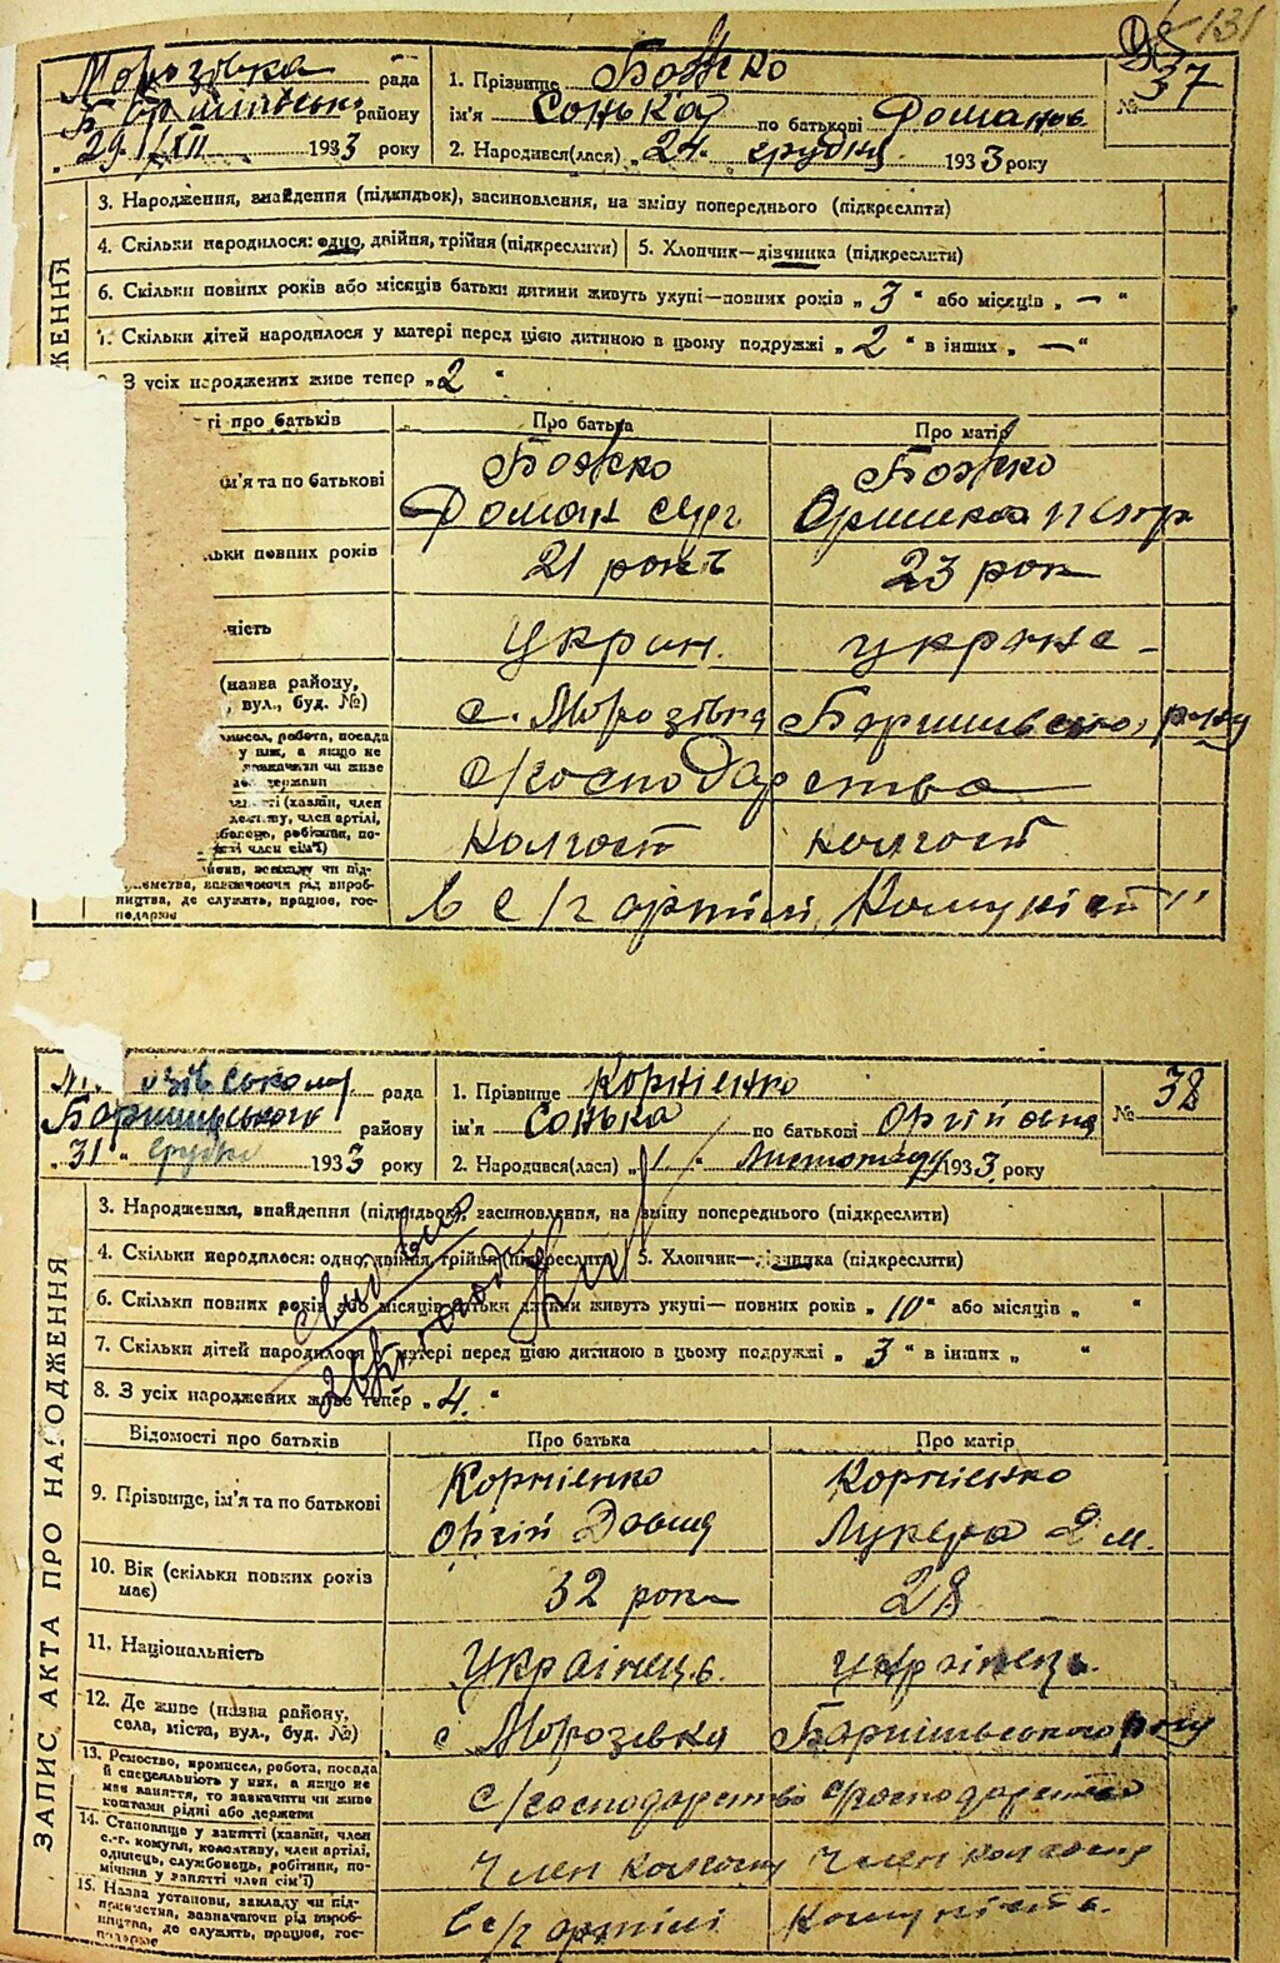 131
Морозівка рада
Б Баришівськ. району
"29" XII 1933 року
1. Прізвище Божко
ім'я Сонька по батькові Романов.
2. Народився(лася) "24" грудня 1933 року
№ 37
3. Народження, знайдення (підкидьок), засиновлення, на зміну попереднього (підкреслити)
4. Скільки народилося: одно, двійня, трійня (підкреслити)
5. Хлопчик—дівчинка (підкреслити)
6. Скільки повних років або місяців батьки дитини живуть укупі—повних років „ 3 " або місяців „ — "
7. Скільки дітей народилося у матері перед цією дитиною в цьому подружжі „ 2 " в інших „ — "
З усіх народжених живе тепер „ 2 "
ті про батьків
Про батька
Про матір
ім'я та по батькові
Божко
Роман Серг.
Божко
Оришка Петр
льки повних років
21 рок
23 рок
ність
Украин.
укране
(назва району,
, вул., буд. №)
с. Морозівка Баришівсько, р-ну
мисел, робота, посада
у них, а якщо не
зазначити чи живе
або держави
с/господарство
ті (хазяїн, член
лективу, член артілі,
бовець, робітник, по-
ті член сім'ї)
колгосп
колгосп
нови, закладу чи під-
приємства, зазначаючи рід вироб-
ництва, де служить, працює, гос-
подарює
в с/г артілі „Комуніст"
озівської рада
Баришівського району
"31" грудня 1933 року
1. Прізвище Корнієнко
ім'я Сонька по батькові Оргійовна
2. Народився(лася) „ 1 " Листопаду 1933 року
№ 38
3. Народження, знайдення (підкидьок), засиновлення, на зміну попереднього (підкреслити)
4. Скільки народилося: одно, двійня, трійня (підкреслити)
5. Хлопчик—дівчинка (підкреслити)
6. Скільки повних років або місяців батьки дитини живуть укупі— повних років „ 10 " або місяців „ "
7. Скільки дітей народилося у матері перед цією дитиною в цьому подружжі „ 3 " в інших „ "
8. З усіх народжених живе тепер „ 4. "
Відомості про батьків
Про батька
Про матір
9. Прізвище, ім'я та по батькові
Корнієнко
Оргій Давид
Корнієнко
Лукера Дм.
10. Вік (скільки повних років
має)
32 рок
28
11. Національність
Українець.
українець.
12. Де живе (назва району,
села, міста, вул., буд. №)
с Морозівка Баришівського р-ну
13. Ремество, промисел, робота, посада
й спеціяльність у них, а якщо не
має заняття, то зазначити чи живе
коштами рідні або держави
с/господарство
с/господарство
14. Становище у занятті (хазяїн, член
с.-г. комуни, колективу, член артілі,
одинець, службовець, робітник, по-
мічник у занятті член сім'ї)
Член колгоспу
Член колгоспу
15. Назва установи, закладу чи під-
приємства, зазначаючи рід вироб-
ництва, де служить, працює, гос-
подарює
в с/г артілі
Комуніст
ЗАПИС АКТА ПРО НАРОДЖЕННЯ
ЖЕННЯ